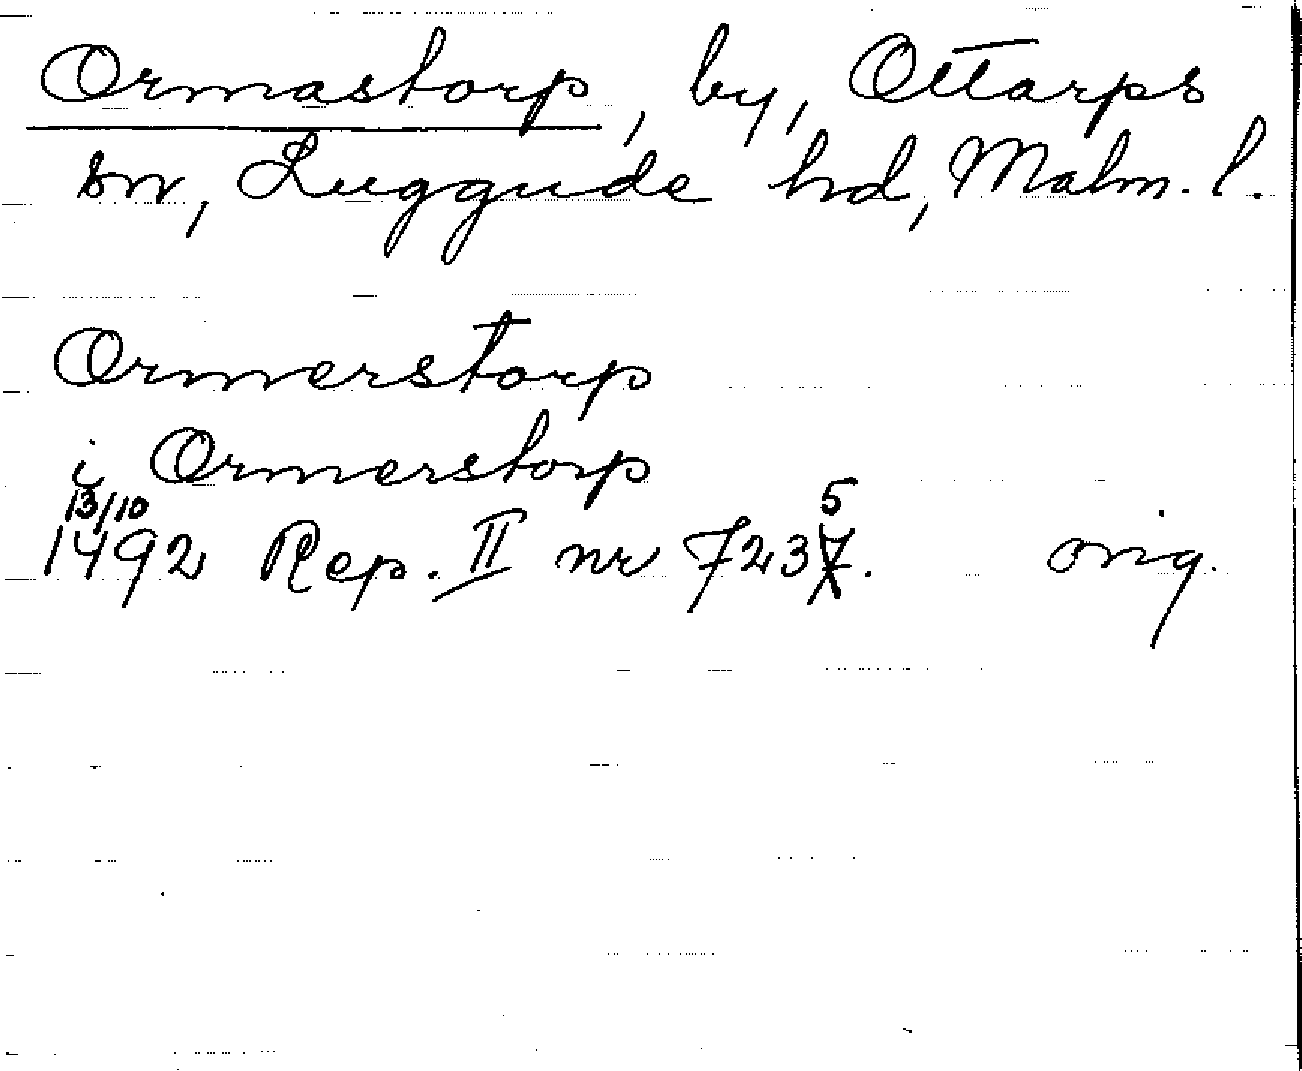 Ormastorp, by, Ottarps
sn, Luggude hd, Malm. l.
Ormerstorp
i Ormerstorp
13/10
1492 Rep. II nr 7235. orig.